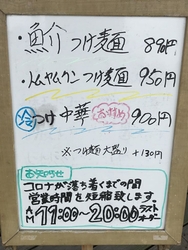 ・魚介つけ麺 890円
・トムヤムクンつけ麺 950円
冷つけ中華 おすすめ 900円
※つけ麺大盛り +130円
お知らせ
コロナが落ち着くまでの間
営業時間を短縮致します。
AM 11:00〜20:00 ラストオーダー